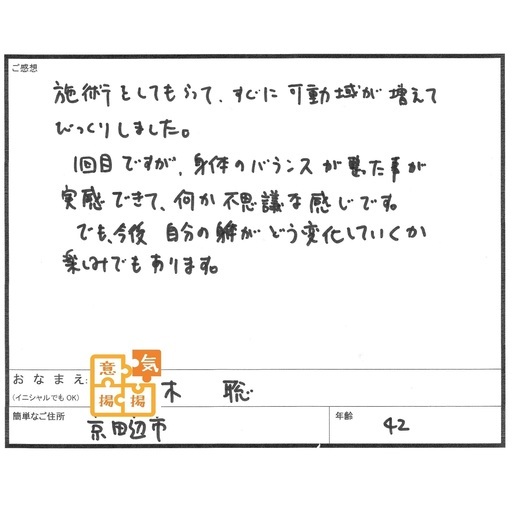 ご感想
施術をしてもらって、すぐに可動域が増えて
びっくりしました。
1回目ですが、身体のバランスが悪った事が
実感できて、何か不思議な感じです。
でも、今後 自分の躰がどう変化していくか
楽しみでもあります。
おなまえ:
(イニシャルでもOK)
意気
揚揚
木 聡
簡単なご住所
京田辺市
年齢
42